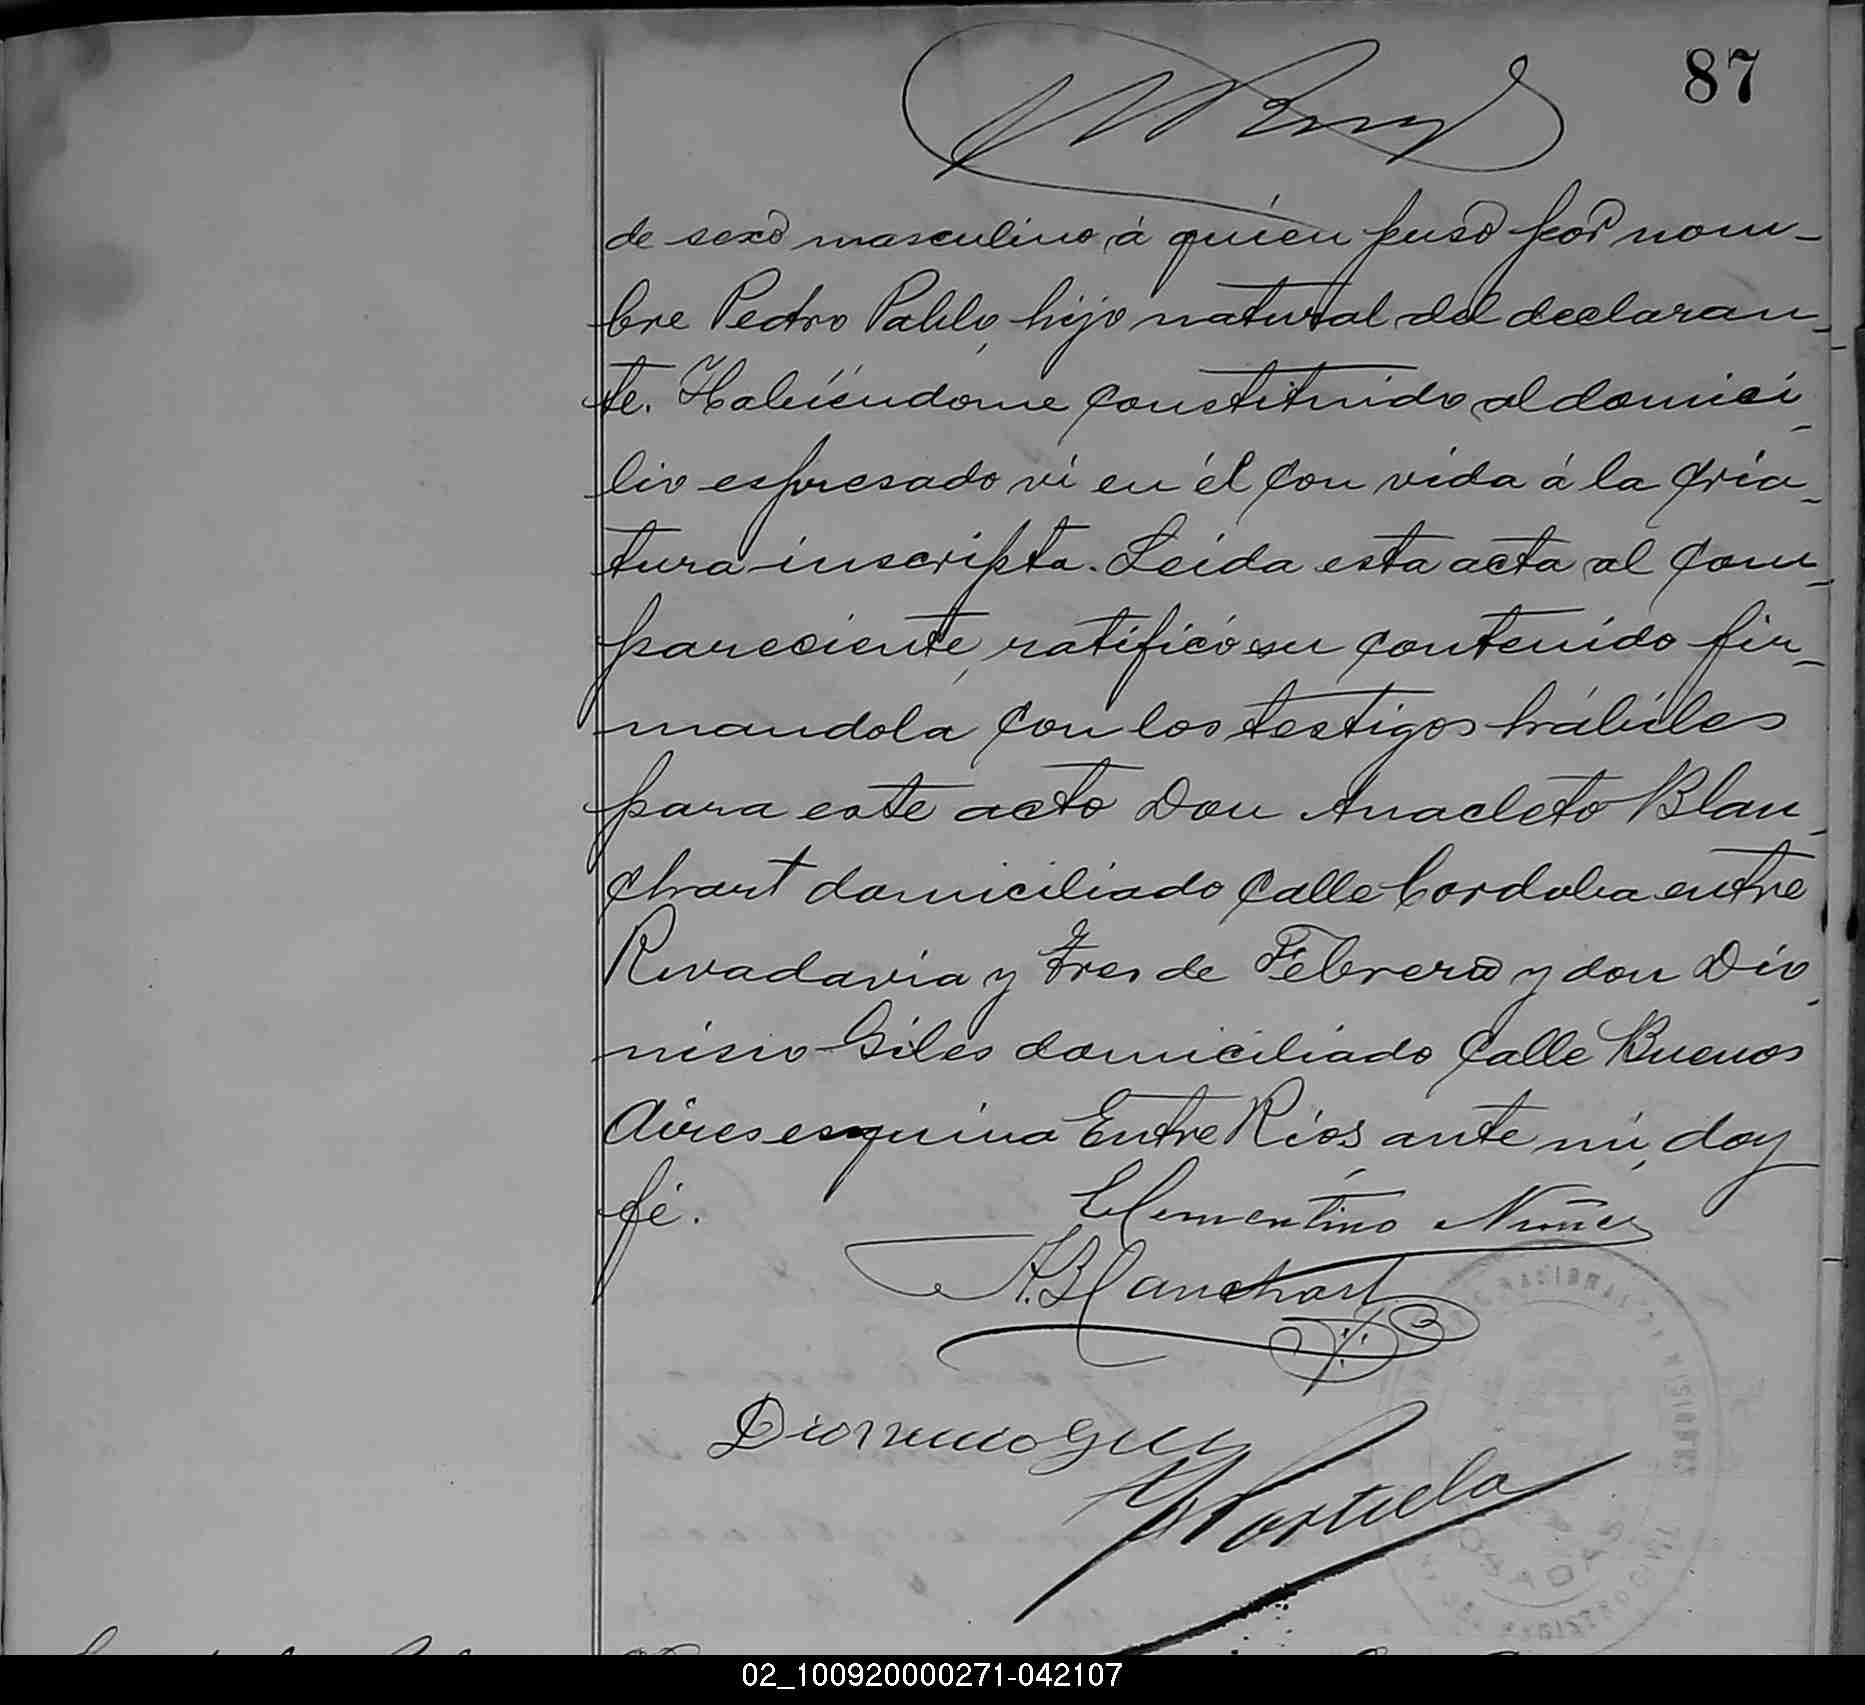 87
de sexo masculino á quién puso por nom-
bre Pedro Pablo, hijo natural del declaran-
te. Habiéndome constituido al domici-
lio espresado vi en él con vida á la cria-
tura inscripta. Leida esta acta al com-
pareciente, ratificó su contenido fir-
mandola con los testigos hábiles
para este acto Don Anacleto Blan-
chart domiciliado calle Cordoba entre
Rivadavia y Tres de Febrero y don Dio-
nisio Giles domiciliado calle Buenos
Aires esquina Entre Rios ante mi, doy
fé.
Clementino Nuñez
A. Blanchart
Dionicio Giles
POSADAS
02_100920000271-042107